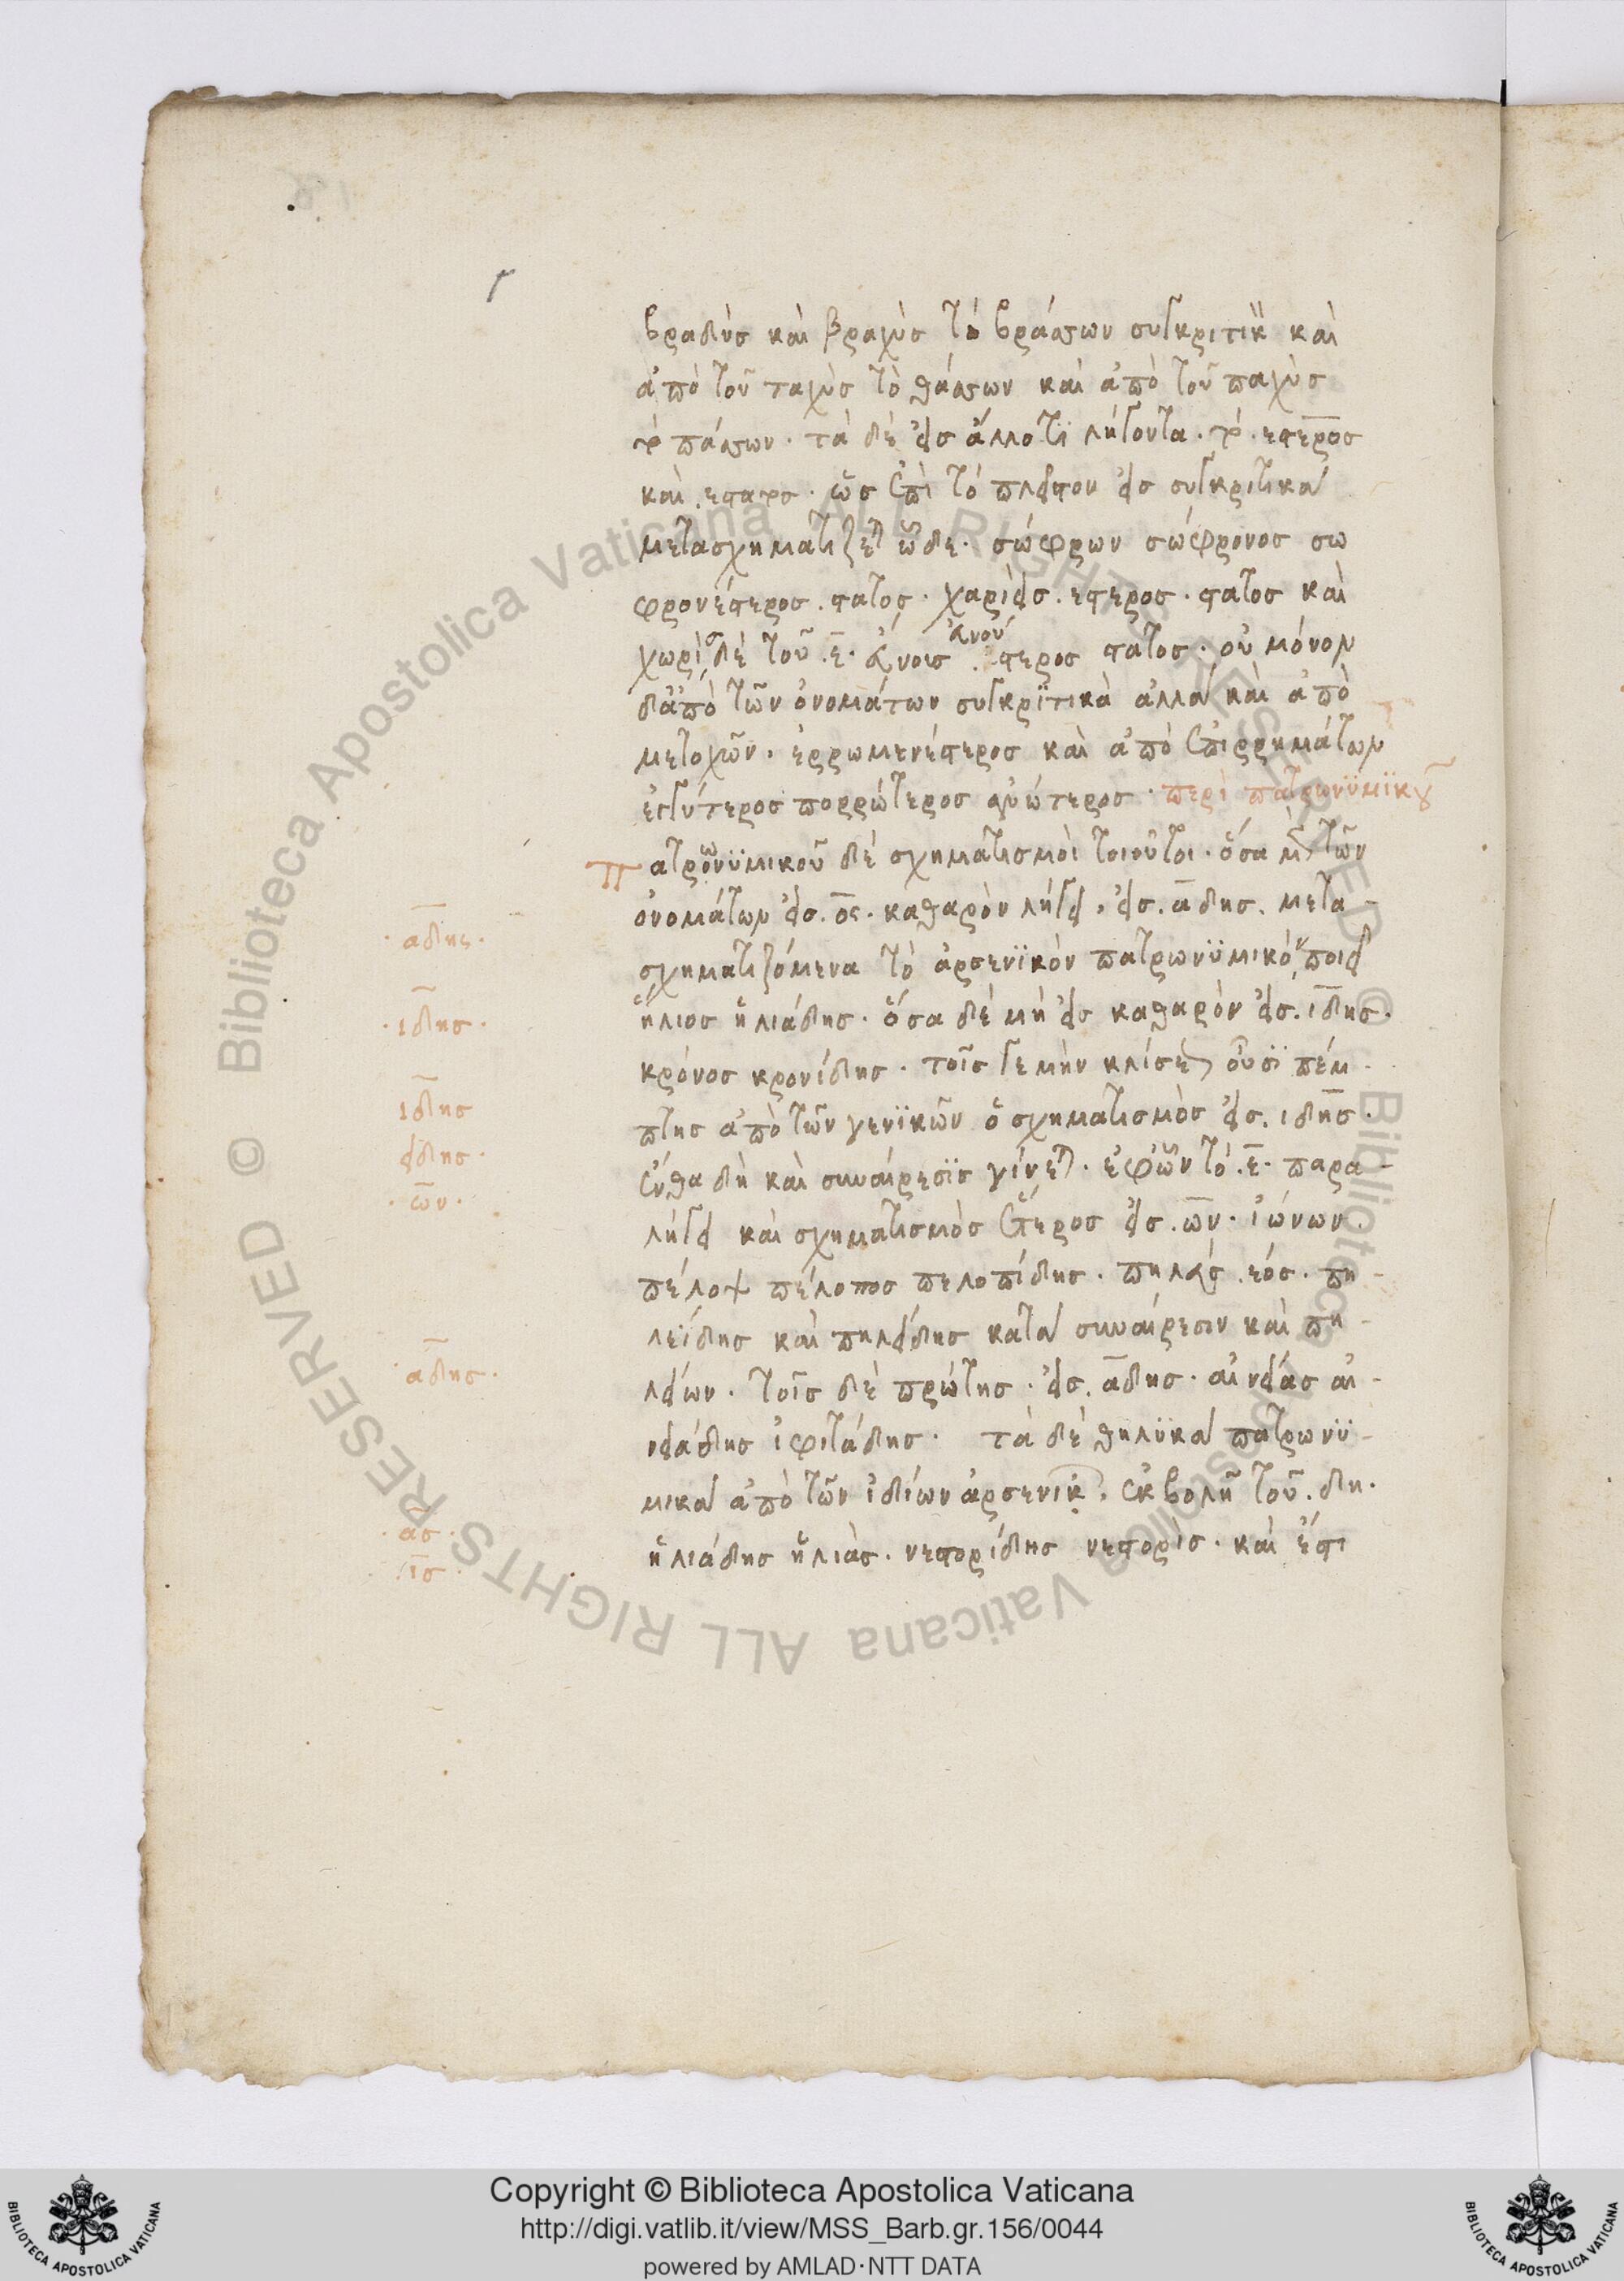 βραδὺς καὶ βραχὺς τὸ βράσσων συγκριτικ καὶ
ἀπὸ τοῦ ταχὺς τὸ θάσσων καὶ ἀπὸ τοῦ παχὺς
πάσσων. τὰ δὲ εἰς ἄλλο τϊ λήγοντα. εστερος
καὶ εστατος. ὡς ἐπὶ τὸ πλεῖστον εἰς συγκριτικὰ
μετασχηματίζεται ὧδε. σώφρων σώφρονος σω
φρονέστερος. στατος. χαρίεις. εστερος. στατος καὶ
χωρὶς δὲ τοῦ .ε. ἄνοις ἀνού στερος στατος. οὐ μόνον
δ' ἀπὸ τῶν ὀνομάτων συγκρϊτικὰ ἀλλὰ καὶ ἀπὸ
μετοχῶν. ἐρρωμενέστερος καὶ ἀπὸ ἐπιρρημάτων
ἐγγύτερος πορρώτερος ἀνώτερος. περὶ πατρωνϋμϊκοῦ
Πατρωνϋμικοῦ δὲ σχηματισμοὶ τοιοῦτοι. ὅσα μὲν τῶν
ὀνομάτων εἰς. ος. καθαρὸν λήγει, εἰς. αδης. μετα-
σχηματιζόμενα τὸ ἀρσενϊκὸν πατρωνϋμικὸν ποιεῖ
ἥλιος ἡλιάδης. ὅσα δὲ μὴ εἰς καθαρὸν εἰς. ιδης.
κρόνος κρονίδης. τοῖς γε μὴν κλίσεως οὖσϊ πέμ-
πτης ἀπὸ τῶν γενϊκῶν ὁ σχηματισμὸς εἰς. ιδης.
ἔνθα δὴ καὶ συναίρεσϊς γίνεται. ἐφ' ὧν τὸ .ε. παρα-
λήγει καὶ σχηματισμὸς ἕτερος εἰς. ων. ἰώνων.
πέλοψ πέλοπος πελοπίδης. πηλεύς .έος. πη-
λεΐδης καὶ πηλείδης κατὰ συναίρεσιν καὶ πη-
λείων. τοῖς δὲ πρώτης. εἰς. αδης. αἰνείας αἰ-
νειάδης ἰφιτάδης. τὰ δὲ θηλϋκὰ πατρωνϋ-
μικὰ ἀπὸ τῶν ἰδίων ἀρσενικ. ἐκβολῇ τοῦ. δη.
ἡλιάδης ἡλιὰς. νεστορίδης νεστορὶς. καὶ ἔστι
. αδης.
. ιδης.
ιδης
ειδης.
. ων.
. αδης.
. ας.
. ις.
Copyright © Biblioteca Apostolica Vaticana
http://digi.vatlib.it/view/MSS_Barb.gr.156/0044
powered by AMLAD·NTT DATA
© Biblioteca Apostolica Vaticana ALL RIGHTS RESERVED
© Biblioteca Apostolica Vaticana ALL RIGHTS RESERVED
BIBLIOTECA APOSTOLICA VATICANA
BIBLIOTECA APOSTOLICA VATICANA